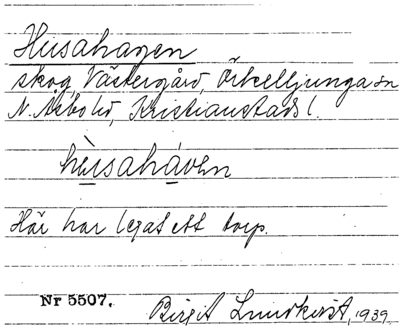 Husahagen
skog, Västergård, Örkelljunga sn
N. Åsbo hd, Kristianstads l.
hùsaháven
Här har legat ett torp.
Nr 5507. Birgit Lundkvist, 1939.